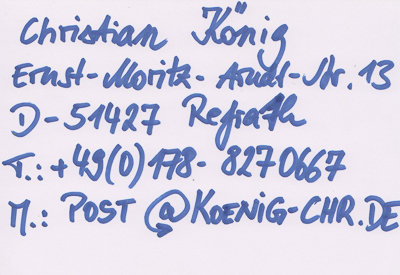 Christian König
Ernst-Moritz-Arndt-Str. 13
D-51427 Refrath
T.: +49(0)178-8270667
M.: POST @KOENIG-CHR.DE